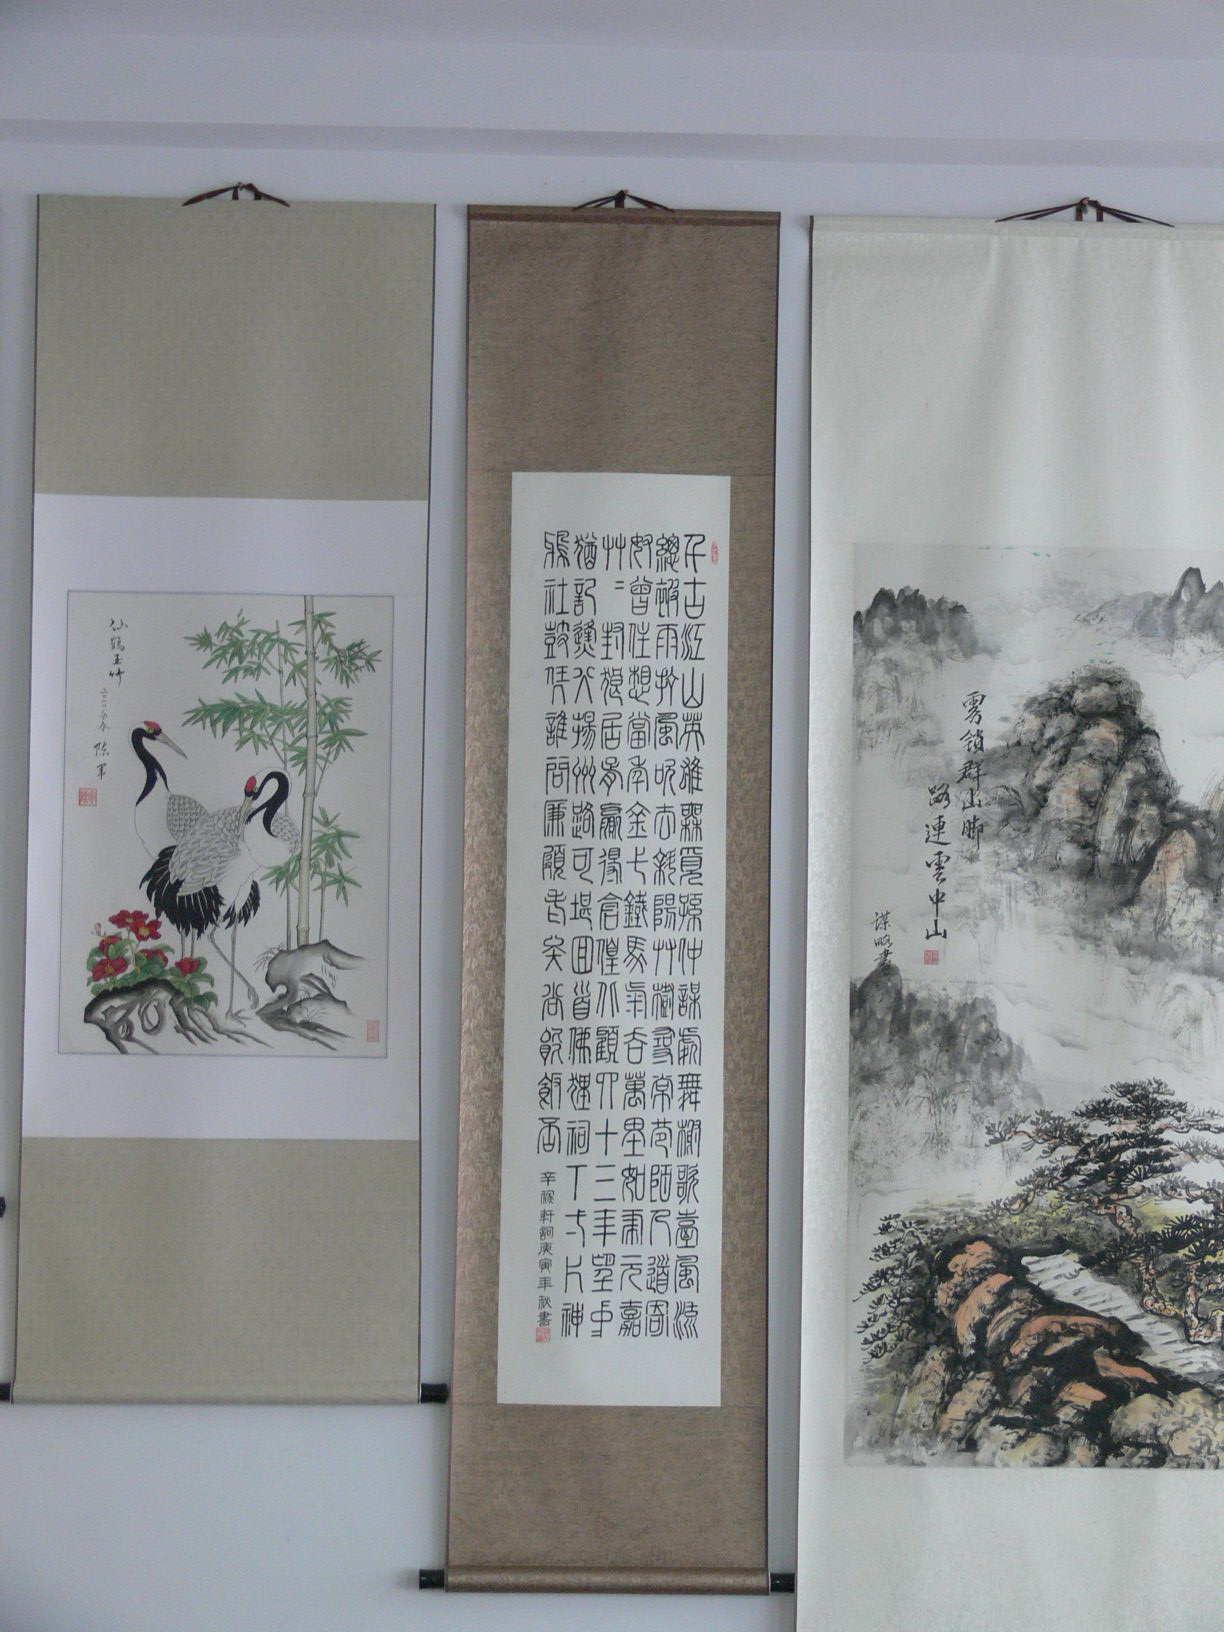 仙鶴玉竹
陈军
千古江山英雄無覓孫仲謀處舞榭歌臺風流
總被雨打風吹去斜陽艸樹尋常巷陌人道寄
奴曾住想當年金戈鐵馬氣吞萬里如虎元嘉
艸〻封狼居胥贏得倉惶北顧四十三年望中
猶記烽火揚州路可堪回首佛狸祠下一片神
鴉社鼓憑誰問廉頗老矣尚能飯否
辛稼軒詞庚寅年秋書
雾鎖群山脚
路連雲中山
謀略書